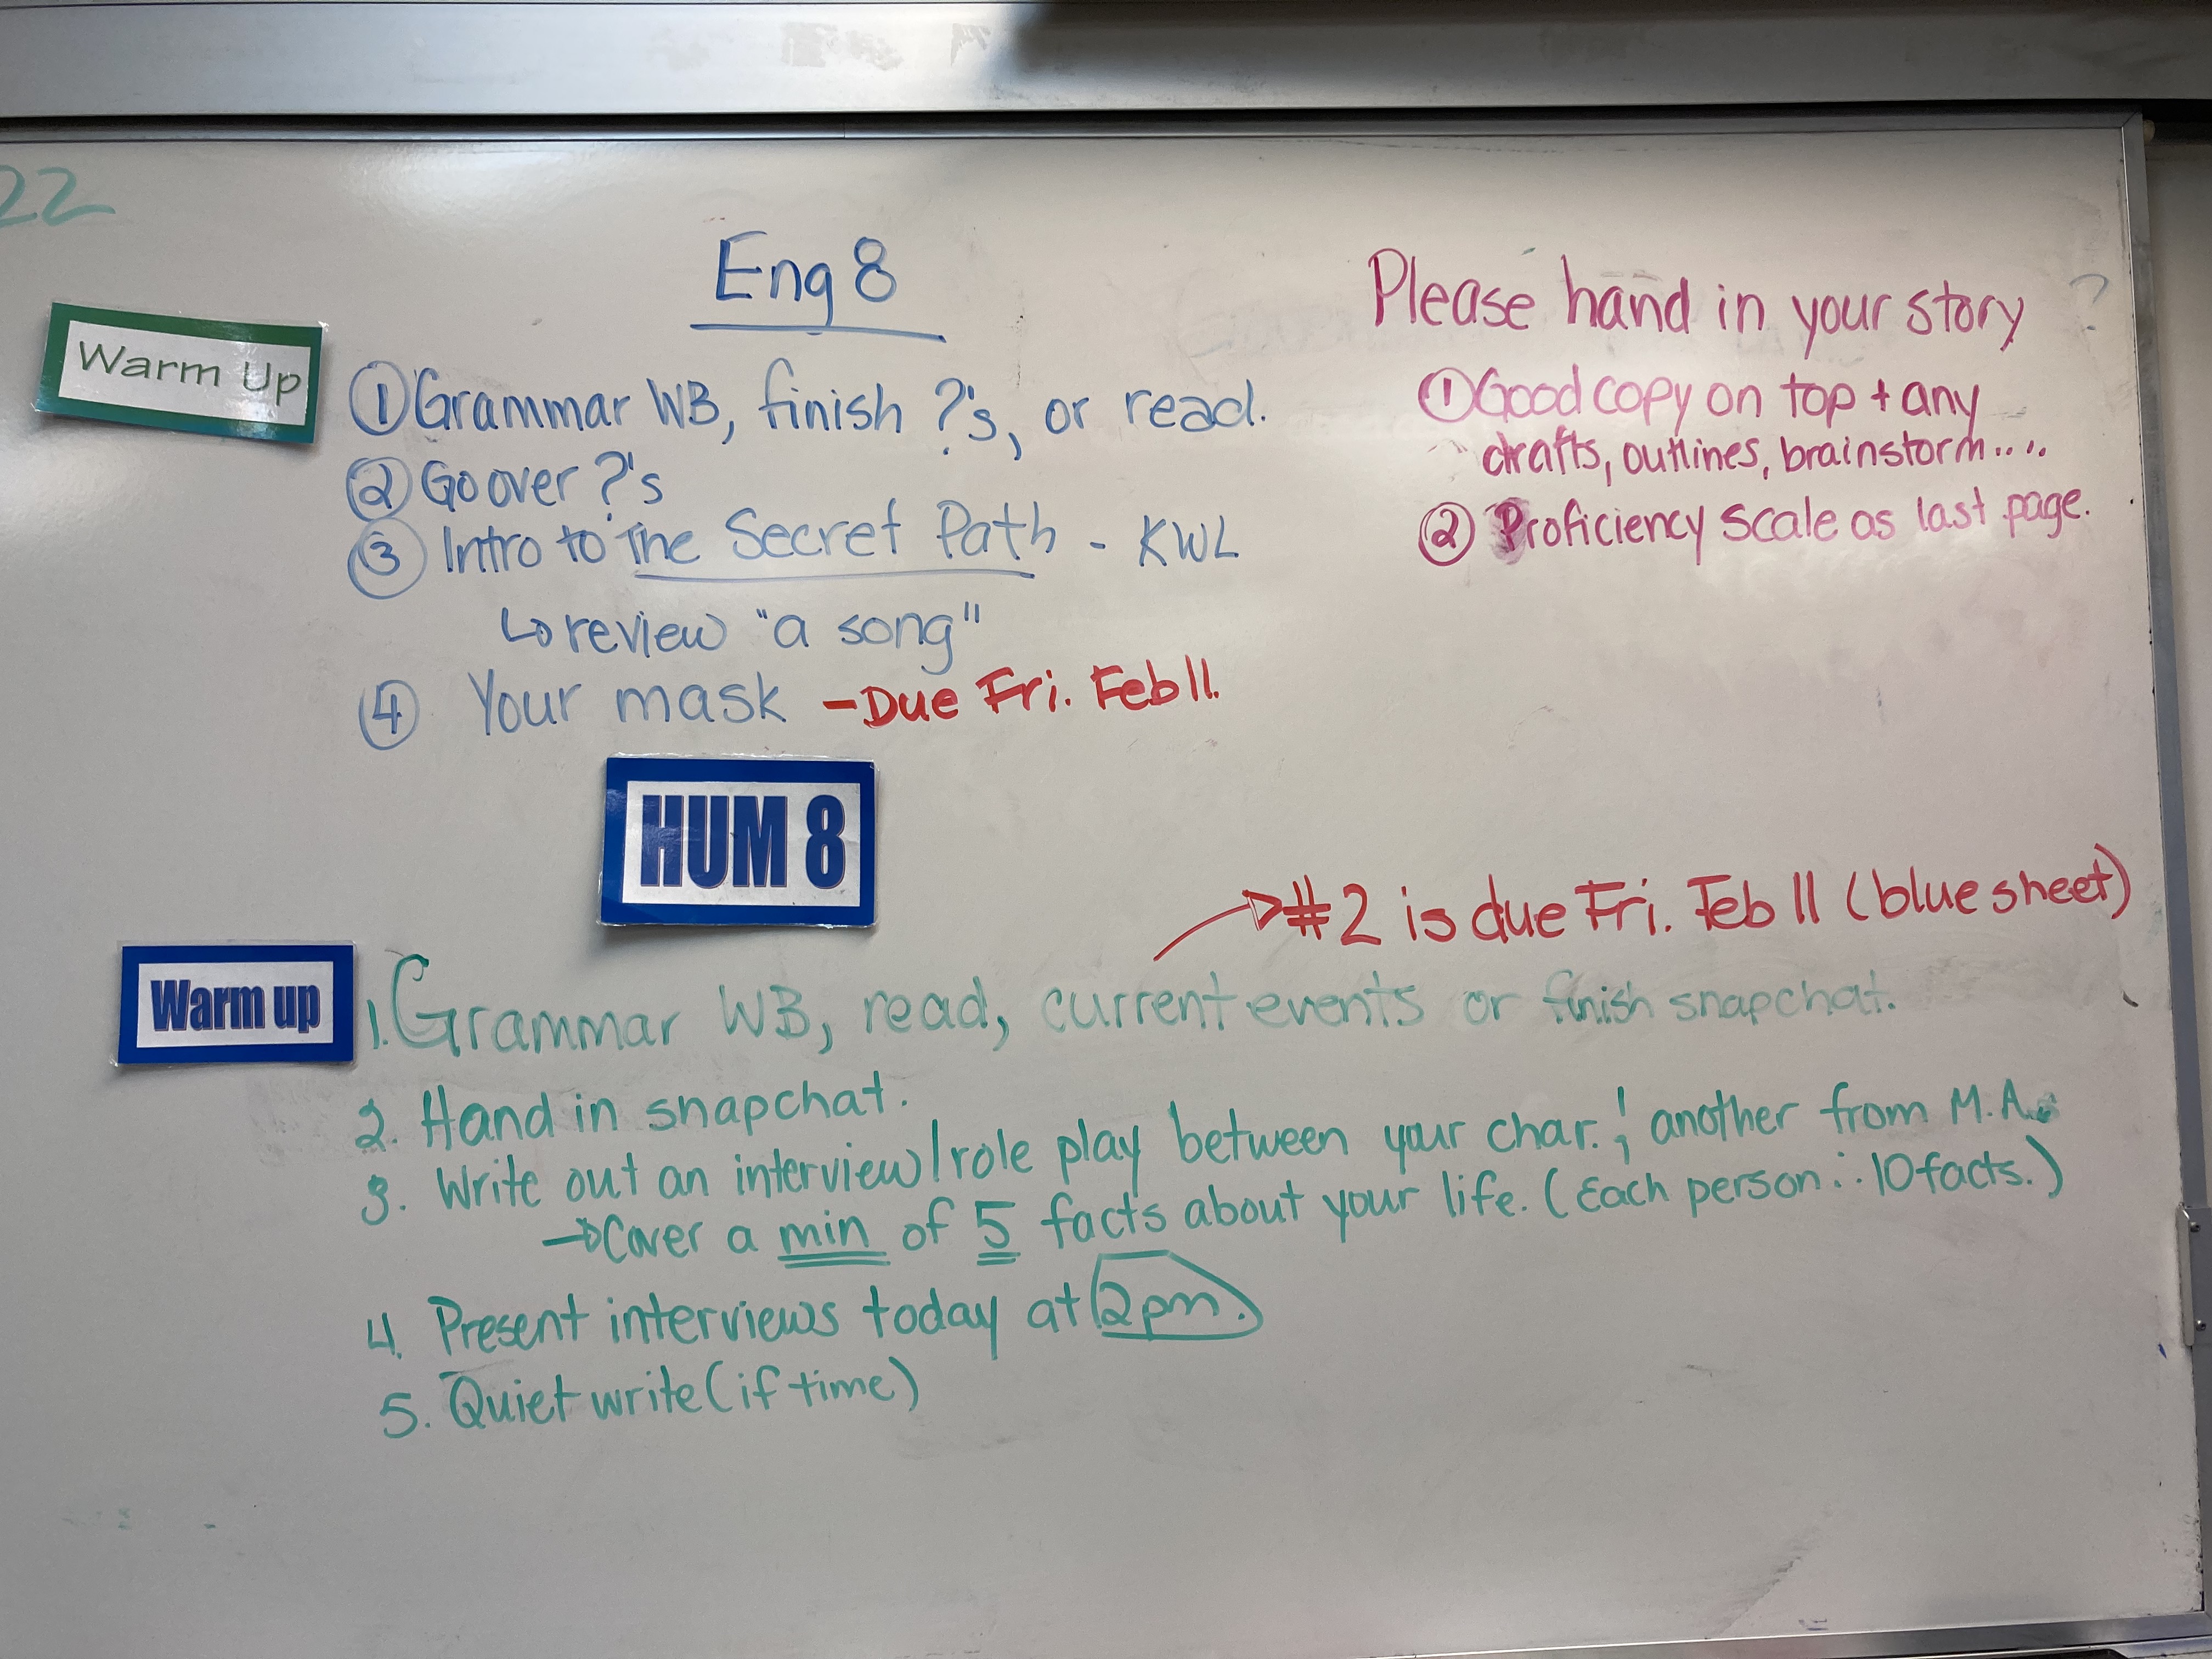 22
Eng 8
Warm Up
① Grammar WB, finish ?'s, or read.
② Go over ?'s
③ Intro to The Secret Path - KWL
↳ review "a song"
④ Your mask - Due Fri. Feb 11.
Please hand in your story
① Good copy on top + any
drafts, outlines, brainstorm....
② Proficiency scale as last page.
?
HUM 8
→ #2 is due Fri. Feb 11 (blue sheet)
Warm up
1. Grammar WB, read, current events or finish snapchat.
2. Hand in snapchat.
3. Write out an interview/role play between your char. & another from M.A.
→ Cover a min of 5 facts about your life. (Each person ∴ 10 facts.)
4. Present interviews today at 2pm.
5. Quiet write (if time)